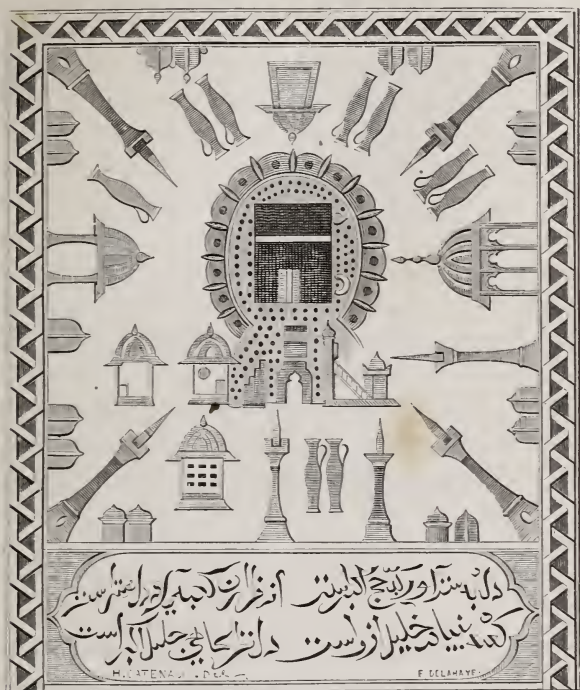 دل بدست آور که حج اکبرست از هزاران کعبه یک دل بهترست
کعبه بنیاد خلیل آزرست دل گاه جلیل اکبرست
H. DEL F. DELAHAYE